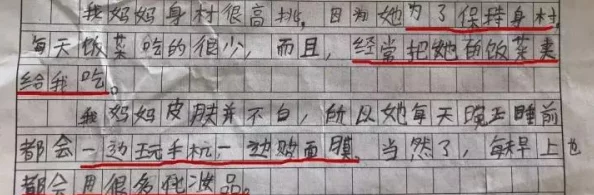 我妈妈身材很高挑，因为她为了保持身材，
每天饭菜吃的很少，而且，经常把她的饭菜夹
给我吃。
我妈妈皮肤并不白，所以她每天晚上睡前
都会一边玩手机一边贴面膜。当然了，每早上也
都会用很多化妆品。